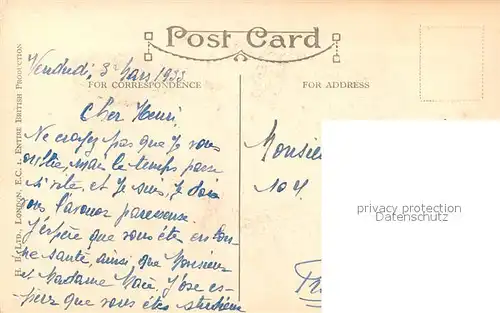 Post Card
FOR CORRESPONDENCE
FOR ADDRESS
H. H. LTD., LONDON, E.C. 1. ENTIRE BRITISH PRODUCTION
Vendredi, 3 Mars 1933
Cher Henri,
Ne croyez pas que Je vous
oublie, mais le temps passe
si vite, et Je suis, je dois
vous l'avouer paresseuse.
J'espère que vous êtes en bon-
ne santé, ainsi que Monsieur
et Madame J'ose es-
pérer que vous êtes studieux
Monsieu
104
privacy protection
Datenschutz